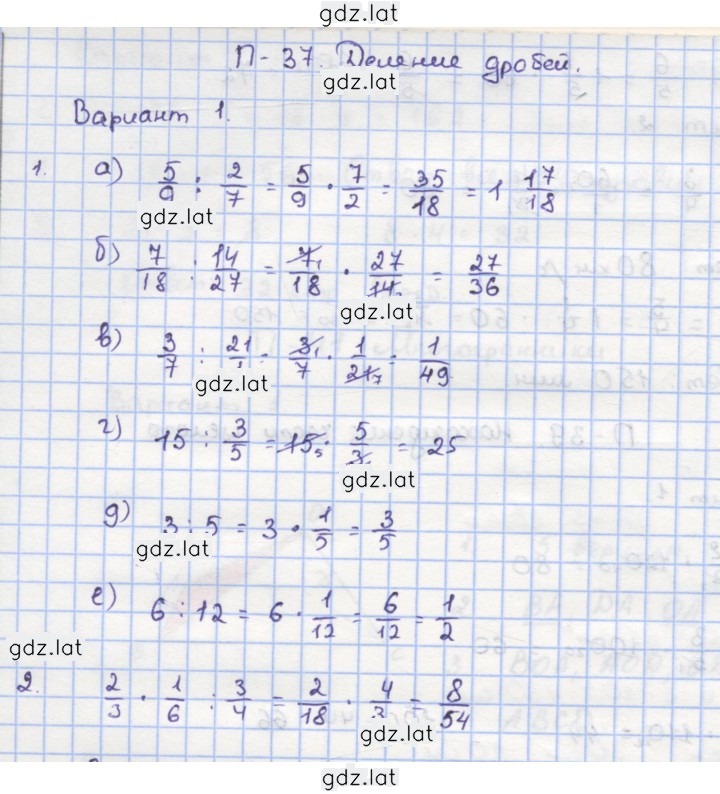 gdz.lat
П-37. Деление дробей.
gdz.lat
Вариант 1.
1. а) 5/9 : 2/7 = 5/9 · 7/2 = 35/18 = 1 17/18
gdz.lat
б) 7/18 : 14/27 = 7 1/18 · 27/14 = 27/36
gdz.lat
в) 3/7 : 21/1 = 3 1/7 · 1/21 7 = 1/49
gdz.lat
г) 15 : 3/5 = 15 5 · 5/3 = 25
gdz.lat
д) 3 : 5 = 3 · 1/5 = 3/5
gdz.lat
е) 6 : 12 = 6 · 1/12 = 6/12 = 1/2
gdz.lat
2. 2/3 · 1/6 : 3/4 = 2/18 · 4/3 = 8/54
gdz.lat
gdz.lat